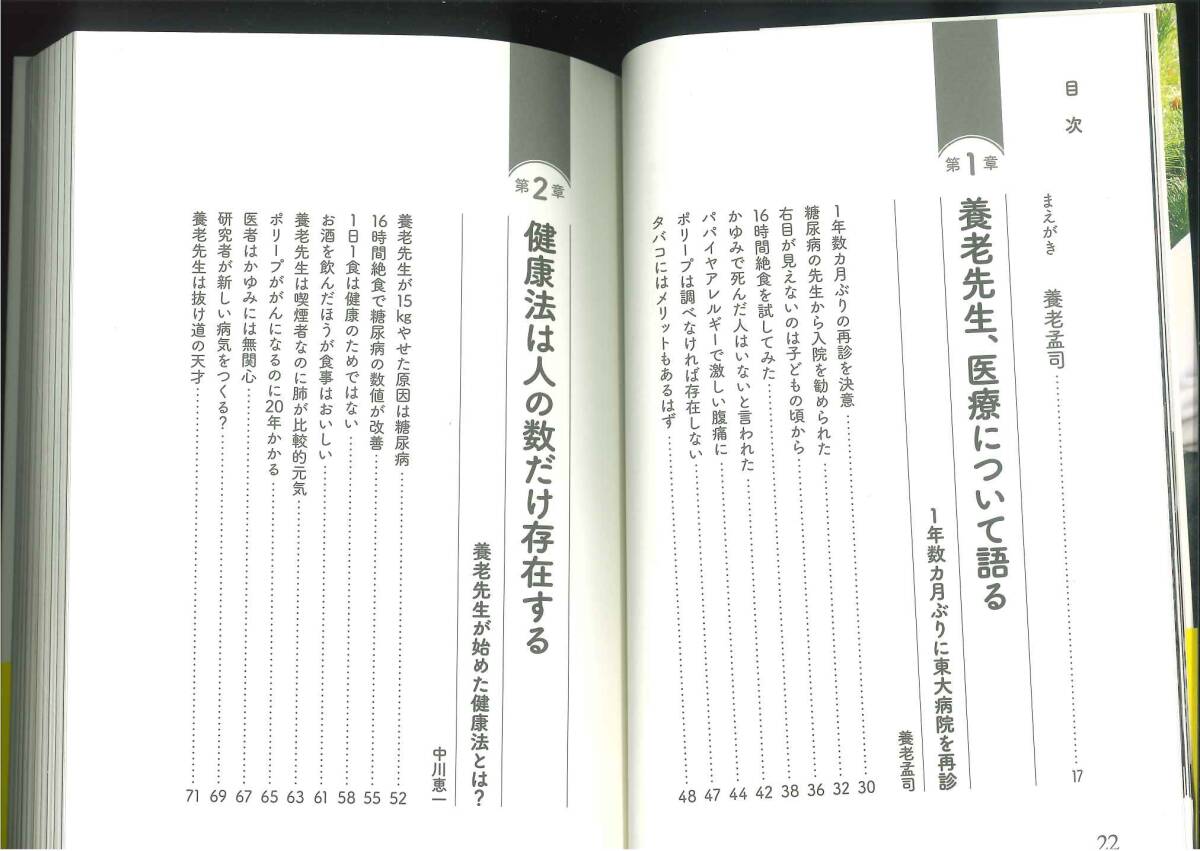 目次
まえがき 養老孟司 …… 17
第1章 養老先生、医療について語る
1年数カ月ぶりに東大病院を再診
養老孟司
1年数カ月ぶりの再診を決意 …… 30
糖尿病の先生から入院を勧められた …… 32
右目が見えないのは子どもの頃から …… 36
16時間絶食を試してみた …… 38
かゆみで死んだ人はいないと言われた …… 42
パパイヤアレルギーで激しい腹痛に …… 44
ポリープは調べなければ存在しない …… 47
タバコにはメリットもあるはず …… 48
22
第2章 健康法は人の数だけ存在する
養老先生が始めた健康法とは?
中川恵一
養老先生が15kgやせた原因は糖尿病 …… 52
16時間絶食で糖尿病の数値が改善 …… 55
1日1食は健康のためではない …… 58
お酒を飲んだほうが食事はおいしい …… 61
養老先生は喫煙者なのに肺が比較的元気 …… 63
ポリープががんになるのに20年かかる …… 65
医者はかゆみには無関心 …… 67
研究者が新しい病気をつくる? …… 69
養老先生は抜け道の天才 …… 71